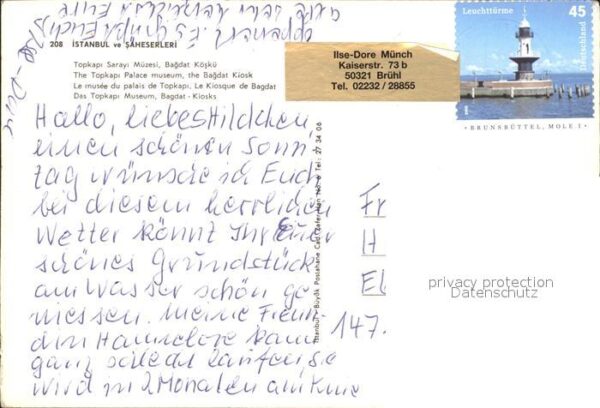 208 İSTANBUL ve ŞAHESERLERİ
Topkapı Sarayı Müzesi, Bağdat Köşkü
The Topkapı Palace museum, the Bağdat Kiosk
Le musée du palais de Topkapı, Le Kiosque de Bagdat
Das Topkapı Museum, Bagdat-Kiosks
Hallo, liebes Hildchen,
einen schönen Sonn
tag wünsche ich Euch
bei diesem herrlichen
Wetter könnt Ihr Euer
schönes Grundstück
am Wasser schön ge
niessen. Meine Freun-
din Hannelore kann
ganz schlecht laufen, sie
wird in 2 Monaten am Knie
Es grüßt Euch
Eure
Ilse-Dore
Ilse-Dore Münch
Kaiserstr. 73 b
50321 Brühl
Tel. 02232 / 28855
Leuchttürme
45
Deutschland
BRUNSBÜTTEL, MOLE 1
Fr
H
El
147.
privacy protection
Datenschutz